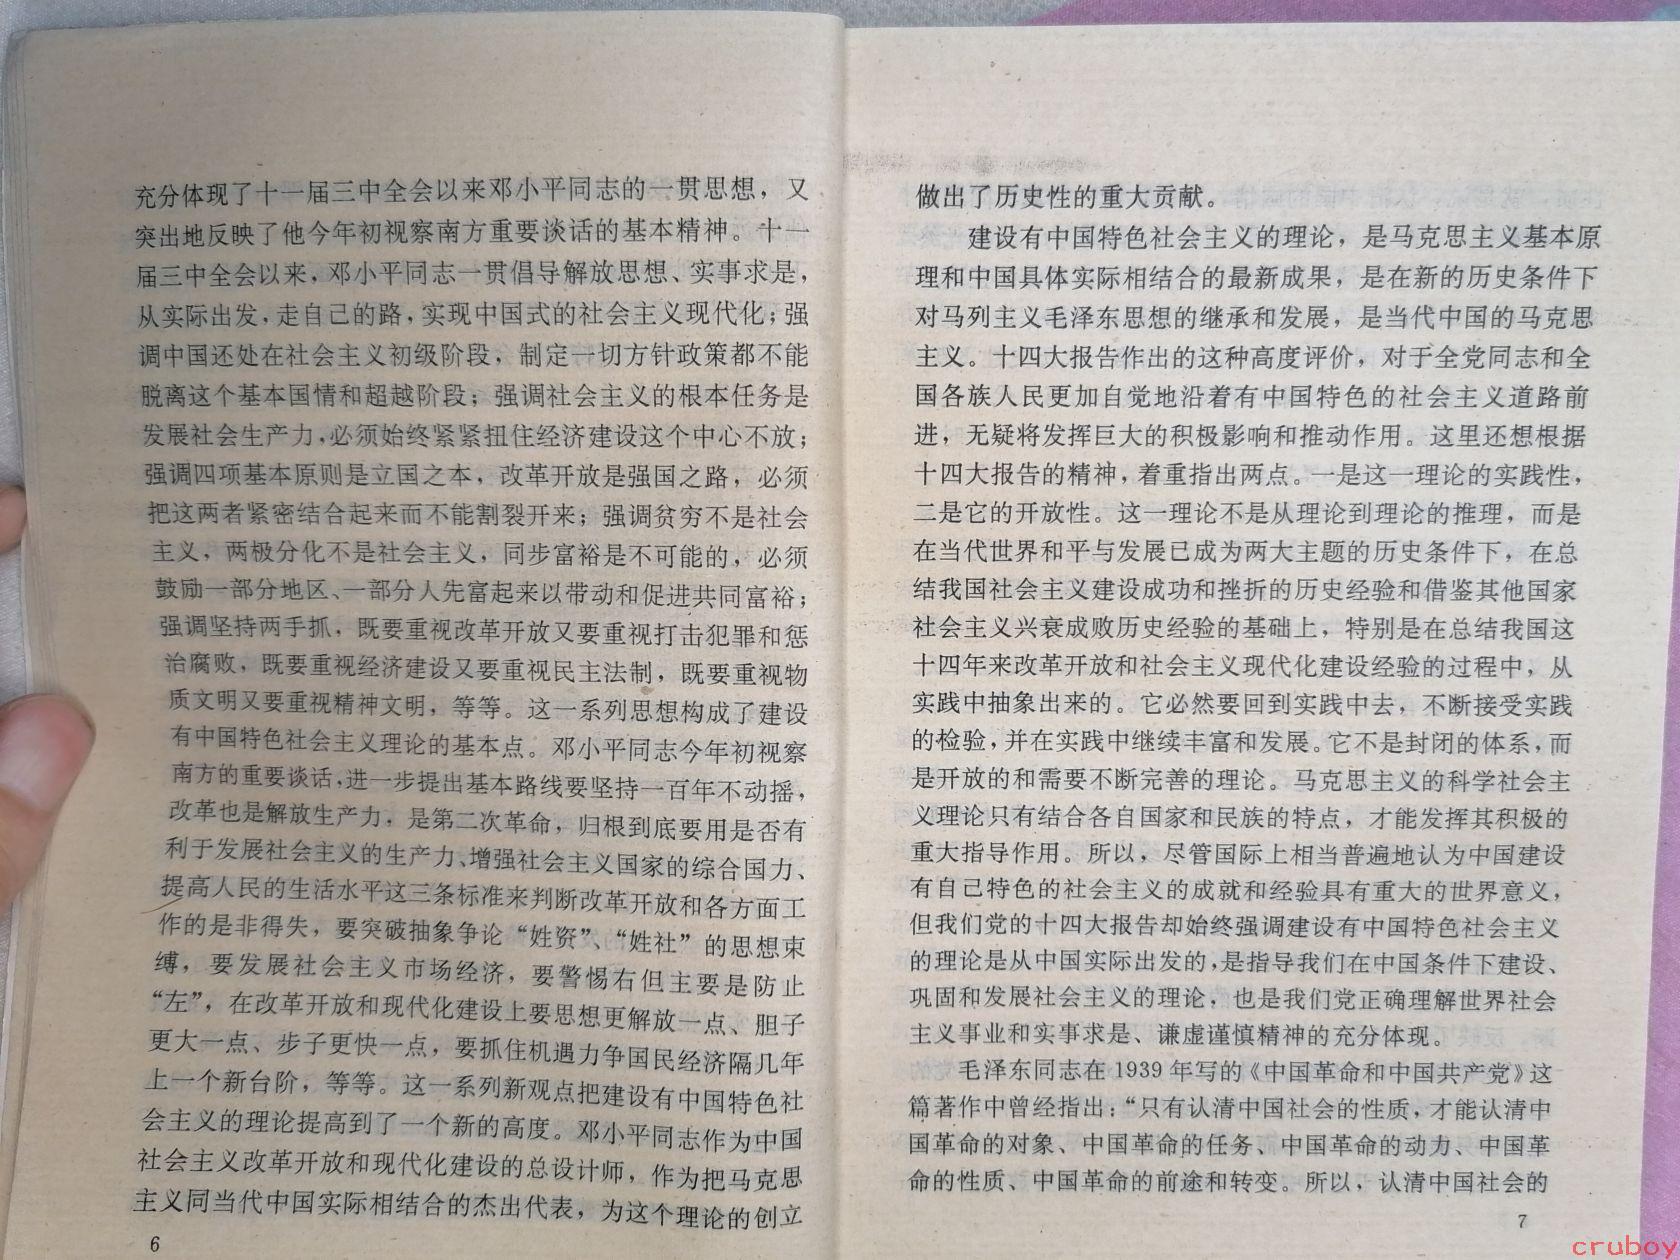 充分体现了十一届三中全会以来邓小平同志的一贯思想，又
突出地反映了他今年初视察南方重要谈话的基本精神。十一
届三中全会以来，邓小平同志一贯倡导解放思想、实事求是，
从实际出发，走自己的路，实现中国式的社会主义现代化；强
调中国还处在社会主义初级阶段，制定一切方针政策都不能
脱离这个基本国情和超越阶段；强调社会主义的根本任务是
发展社会生产力，必须始终紧紧扭住经济建设这个中心不放；
强调四项基本原则是立国之本，改革开放是强国之路，必须
把这两者紧密结合起来而不能割裂开来；强调贫穷不是社会
主义，两极分化不是社会主义，同步富裕是不可能的，必须
鼓励一部分地区、一部分人先富起来以带动和促进共同富裕；
强调坚持两手抓，既要重视改革开放又要重视打击犯罪和惩
治腐败，既要重视经济建设又要重视民主法制，既要重视物
质文明又要重视精神文明，等等。这一系列思想构成了建设
有中国特色社会主义理论的基本点。邓小平同志今年初视察
南方的重要谈话，进一步提出基本路线要坚持一百年不动摇，
改革也是解放生产力，是第二次革命，归根到底要用是否有
利于发展社会主义的生产力、增强社会主义国家的综合国力、
提高人民的生活水平这三条标准来判断改革开放和各方面工
作的是非得失，要突破抽象争论“姓资”、“姓社”的思想束
缚，要发展社会主义市场经济，要警惕右但主要是防止
“左”，在改革开放和现代化建设上要思想更解放一点、胆子
更大一点、步子更快一点，要抓住机遇力争国民经济隔几年
上一个新台阶，等等。这一系列新观点把建设有中国特色社
会主义的理论提高到了一个新的高度。邓小平同志作为中国
社会主义改革开放和现代化建设的总设计师，作为把马克思
主义同当代中国实际相结合的杰出代表，为这个理论的创立
6
做出了历史性的重大贡献。
建设有中国特色社会主义的理论，是马克思主义基本原
理和中国具体实际相结合的最新成果，是在新的历史条件下
对马列主义毛泽东思想的继承和发展，是当代中国的马克思
主义。十四大报告作出的这种高度评价，对于全党同志和全
国各族人民更加自觉地沿着有中国特色的社会主义道路前
进，无疑将发挥巨大的积极影响和推动作用。这里还想根据
十四大报告的精神，着重指出两点。一是这一理论的实践性，
二是它的开放性。这一理论不是从理论到理论的推理，而是
在当代世界和平与发展已成为两大主题的历史条件下，在总
结我国社会主义建设成功和挫折的历史经验和借鉴其他国家
社会主义兴衰成败历史经验的基础上，特别是在总结我国这
十四年来改革开放和社会主义现代化建设经验的过程中，从
实践中抽象出来的。它必然要回到实践中去，不断接受实践
的检验，并在实践中继续丰富和发展。它不是封闭的体系，而
是开放的和需要不断完善的理论。马克思主义的科学社会主
义理论只有结合各自国家和民族的特点，才能发挥其积极的
重大指导作用。所以，尽管国际上相当普遍地认为中国建设
有自己特色的社会主义的成就和经验具有重大的世界意义，
但我们党的十四大报告却始终强调建设有中国特色社会主义
的理论是从中国实际出发的，是指导我们在中国条件下建设、
巩固和发展社会主义的理论，也是我们党正确理解世界社会
主义事业和实事求是、谦虚谨慎精神的充分体现。
毛泽东同志在1939年写的《中国革命和中国共产党》这
篇著作中曾经指出：“只有认清中国社会的性质，才能认清中
国革命的对象、中国革命的任务、中国革命的动力、中国革
命的性质、中国革命的前途和转变。所以，认清中国社会的
7
cruboy